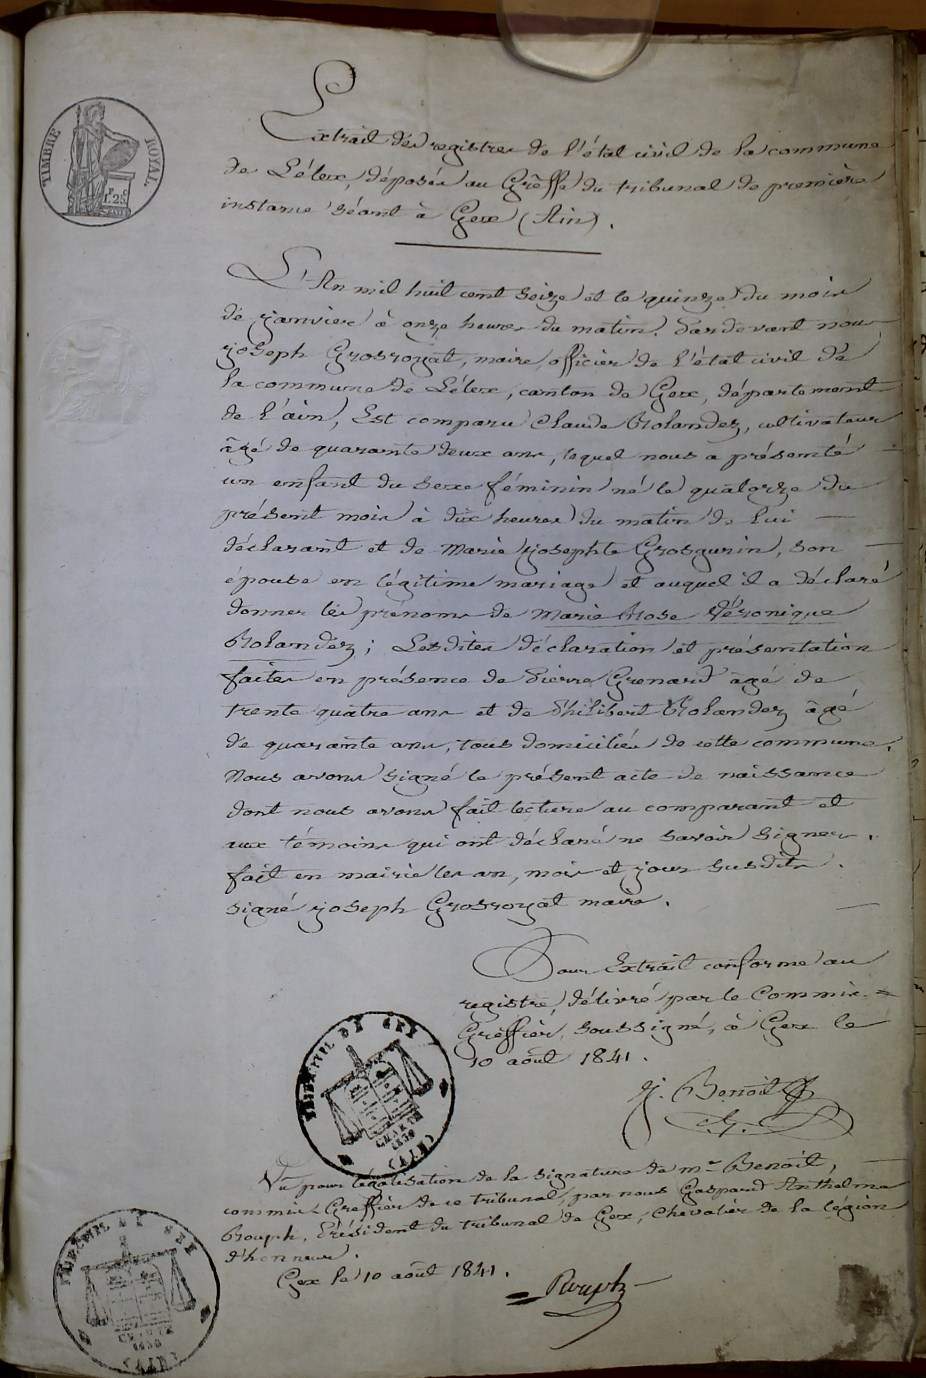 TIMBRE ROYAL.
1F 25C
Extrait des registres de l'état civil de la commune
de Lélex, déposés au Greffe du tribunal de première
instance séant à Gex (Ain).
L'An mil huit cent seize et le quinze du mois
de janvier à onze heures du matin. Pardevant nous
joseph Grosroyat, maire, officier de l'état civil de
la commune de Lélex, canton de Gex, département
de l'ain, Est comparu Claude Rolandez, cultivateur
âgé de quarante deux ans, lequel nous a présenté
un enfant du sexe féminin né le quatorze du
présent mois à dix heures du matin de lui
déclarant et de marie josephte Grosgurin, son
épouse en légitime mariage et auquel il a déclaré
donner les prénoms de marie Rose Véronique
Rolandez; Lesdites déclaration et présentation
faites en présence de Pierre Grenard âgé de
trente quatre ans et de Philibert Rolandez âgé
de quarante ans, tous domiciliés de cette commune.
Nous avons signé le présent acte de naissance
dont nous avons fait lecture au comparant et
aux témoins qui ont déclaré ne savoir signer.
fait en mairie les an, mois et jour susdits.
signé joseph Grosroyat maire.
Pour Extrait conforme au
registre, délivré par le Commis-
Greffier, soussigné, à Gex le
10 août 1841.
j. Benoit
C. G.
TRIBUNAL DE GEX
CHARTE
1830
(AIN)
Vu pour légalisation de la signature de mr Benoit,
commis-Greffier de ce tribunal, par nous Gaspard Anthelme
Rouph, Président du tribunal de Gex, Chevalier de la légion
d'honneur.
Gex le 10 août 1841.
Rouph
TRIBUNAL DE GEX
CHARTE
1830
(AIN)